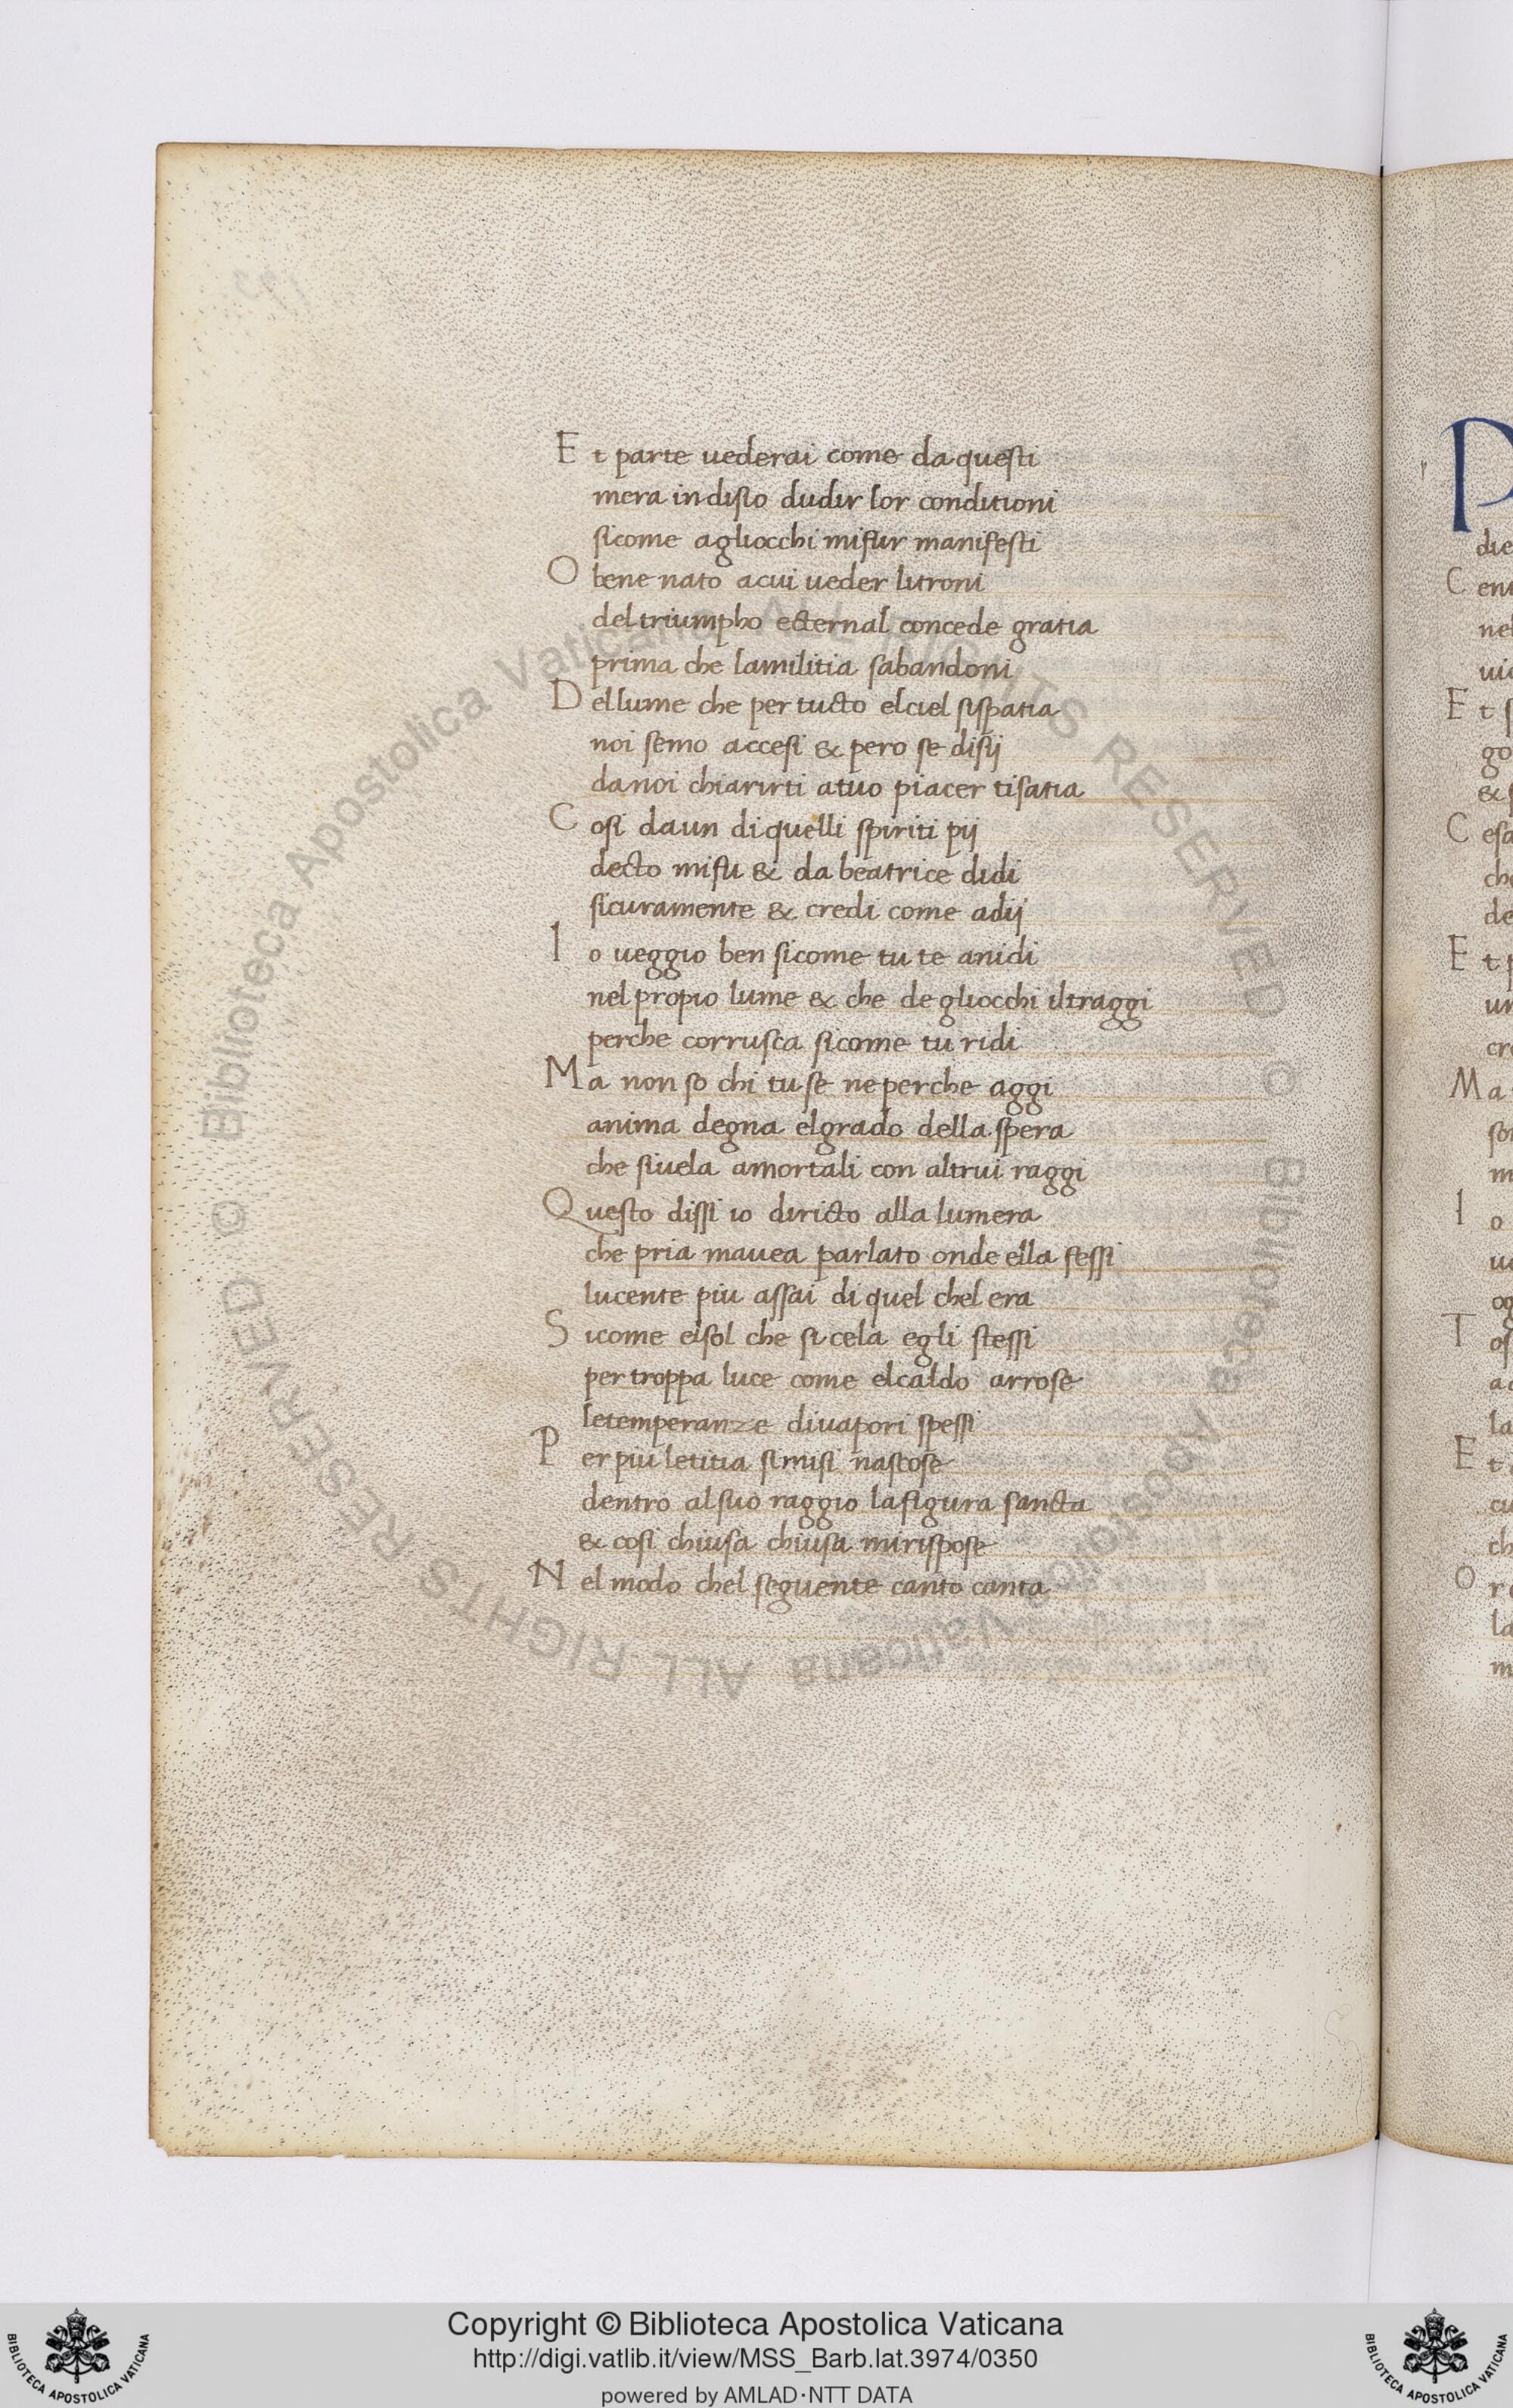 Et parte uederai come da questi
mera in disio dudir lor conditioni
sicome agliocchi mi fur manifesti
O bene nato acui ueder litroni
del triumpho ecternal concede gratia
prima che lamilitia sabandoni
Del lume che per tucto elciel sispatia
noi semo accesi & pero se disij
danoi chiarirti atuo piacer tisatia
Cosi daun di quelli spiriti pij
decto mi fu & da beatrice didi
sicuramente & credi come adij
Io ueggio ben sicome tu te anidi
nel propio lume & che de gliocchi iltraggi
perche corrusca sicome tu ridi
Ma non so chi tu se ne perche aggi
anima degna elgrado della spera
che siuela amortali con altrui raggi
Questo dissi io diricto alla lumera
che pria mauea parlato onde ella fessi
lucente piu assai di quel chel era
Sicome elsol che si cela egli stessi
per troppa luce come elcaldo arrose
letemperanze diuapori spessi
Per piu letitia simisi nascose
dentro alsuo raggio lafigura sancta
& cosi chiusa chiusa mirispose
Nel modo chel seguente canto canta
P
die
C en
nel
uic
Et s
go
& s
C esa
che
de
Et p
un
cre
Ma
sor
m
Io
ue
og
T os
ac
la
Et
cu
ch
O r
la
m
© Biblioteca Apostolica Vaticana ALL RIGHTS RESERVED © Biblioteca Apostolica Vaticana ALL RIGHTS RESERVED
Copyright © Biblioteca Apostolica Vaticana
http://digi.vatlib.it/view/MSS_Barb.lat.3974/0350
powered by AMLAD·NTT DATA
BIBLIOTECA APOSTOLICA VATICANA
BIBLIOTECA APOSTOLICA VATICANA